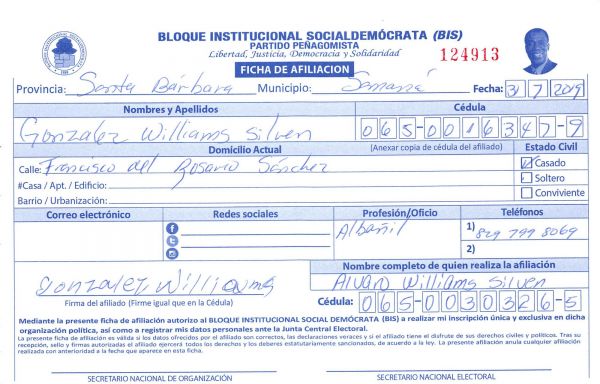 BLOQUE INSTITUCIONAL SOCIALDEMÓCRATA (BIS)
PARTIDO PEÑAGOMISTA
Libertad, Justicia, Democracia y Solidaridad
124913
FICHA DE AFILIACION
Provincia: Santa Bárbara Municipio: Samaná Fecha: 3/7/2019
Nombres y Apellidos Cédula
Gonzalez Williams Silven 065-0016347-9
Domicilio Actual (Anexar copia de cédula del afiliado) Estado Civil
Calle: Francisco del Rosario Sánchez Casado
#Casa / Apt. / Edificio: Soltero
Barrio / Urbanización: Conviviente
Correo electrónico Redes sociales Profesión/Oficio Teléfonos
Albañil 1) 829 799 8069
2)
Nombre completo de quien realiza la afiliación
Gonzalez Williams Alvaro Williams Silven
Firma del afiliado (Firme igual que en la Cédula) Cédula: 065-0030326-5
Mediante la presente ficha de afiliación autorizo al BLOQUE INSTITUCIONAL SOCIAL DEMÓCRATA (BIS) a realizar mi inscripción única y exclusiva en dicha
organización política, así como a registrar mis datos personales ante la Junta Central Electoral.
La presente ficha de afiliación es válida si los datos ofrecidos por el afiliado son correctos, las declaraciones veraces y si el afiliado tiene el disfrute de sus derechos civiles y políticos. Tras su
recepción, sello y firmas autorizadas el afiliado ejercerá todos los derechos y los deberes estatutariamente sancionados, de acuerdo a la ley. La presente afiliación anula cualquier afiliación
realizada con anterioridad a la fecha que aparece en esta ficha.
SECRETARIO NACIONAL DE ORGANIZACIÓN SECRETARIO NACIONAL ELECTORAL